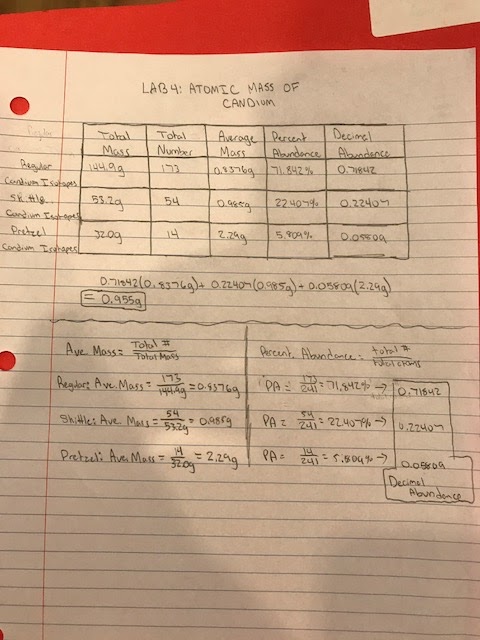 LAB 4: ATOMIC MASS OF
CANDIUM
Total Mass | Total Number | Average Mass | Percent Abundance | Decimal Abundance
Regular Candium Isotopes | 144.9g | 173 | 0.8376g | 71.842% | 0.71842
Skittle Candium Isotopes | 53.2g | 54 | 0.985g | 22.407% | 0.22407
Pretzel Candium Isotopes | 32.0g | 14 | 2.29g | 5.809% | 0.05809
0.71842(0.8376g) + 0.22407(0.985g) + 0.05809(2.29g)
= 0.955g
Ave Mass = Total # / Total Mass
Regular: Ave. Mass = 173/144.9g = 0.8376g
Skittle: Ave. Mass = 54/53.2g = 0.985g
Pretzel: Ave. Mass = 14/32.0g = 2.29g
Percent Abundance = total # /
PA = 173/241 = 71.842% → 0.71842
PA = 54/241 = 22.407% → 0.22407
PA = 14/241 = 5.809% → 0.05809
Decimal
Abundance